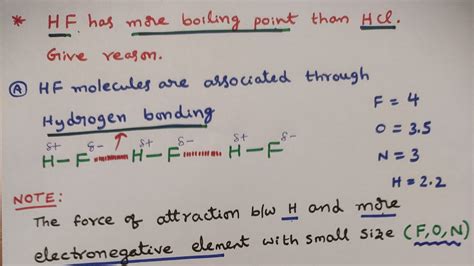 * HF has more boiling point than HCl.
Give reason.
Ⓐ HF molecules are associated through
Hydrogen bonding
δ+ δ- δ+ δ- δ+ δ-
H-F H-F H-F
F = 4
O = 3.5
N = 3
H = 2.2
NOTE:
The force of attraction b/w H and more
electronegative element with small size (F,O,N)